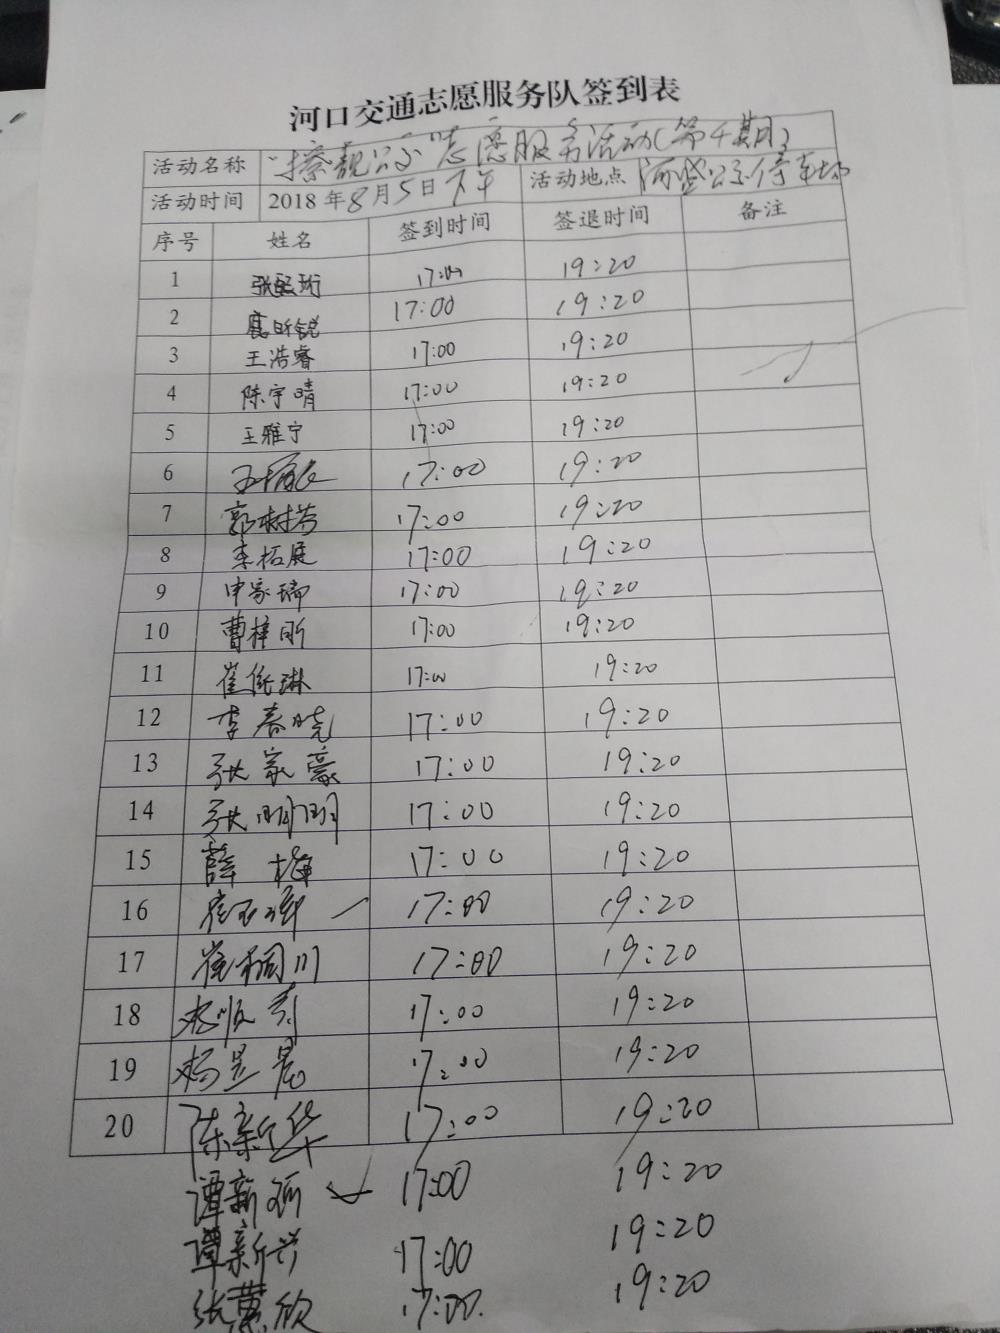 河口交通志愿服务队签到表
活动名称 "擦靓公交"志愿服务活动(第十期)
活动时间 2018年8月5日下午 活动地点 河口公交停车场
序号 姓名 签到时间 签退时间 备注
1 17:00 19:20
2 17:00 19:20
3 王浩睿 17:00 19:20
4 陈宇晴 17:00 19:20
5 王雅宁 17:00 19:20
6 17:00 19:20
7 郭树芬 17:00 19:20
8 李拓展 17:00 19:20
9 申家瑞 17:00 19:20
10 曹梓昕 17:00 19:20
11 17:00 19:20
12 李春晓 17:00 19:20
13 张家豪 17:00 19:20
14 张明明 17:00 19:20
15 薛梅 17:00 19:20
16 17:00 19:20
17 崔桐川 17:00 19:20
18 17:00 19:20
19 杨昱晨 17:00 19:20
20 陈新华 17:00 19:20
谭新 17:00 19:20
谭新兴 17:00 19:20
张慧欣 17:00 19:20